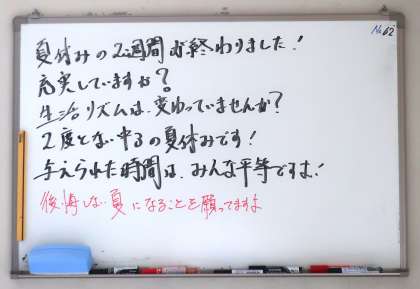 No62
夏休みの2週間が終わりました!
充実していますか?
生活リズムは、変わっていませんか?
2度とない中3の夏休みです!
与えられた時間は、みんな平等ですよ!
後悔しない夏になることを願ってますよ